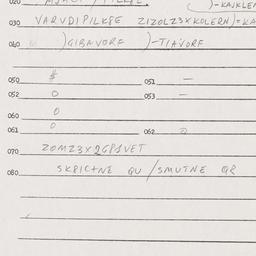 020
030 VARVDIPILKPE ZIZOLZ3XKOLERN)=KA
040 )GIBAVORF )-TIAVORF
050 $ 051 —
052 0 053 —
060 0
061 0 062 0
070 ZOMZ3X2GPSVET
080 SKRIC+NE QU /SMUTNE QR